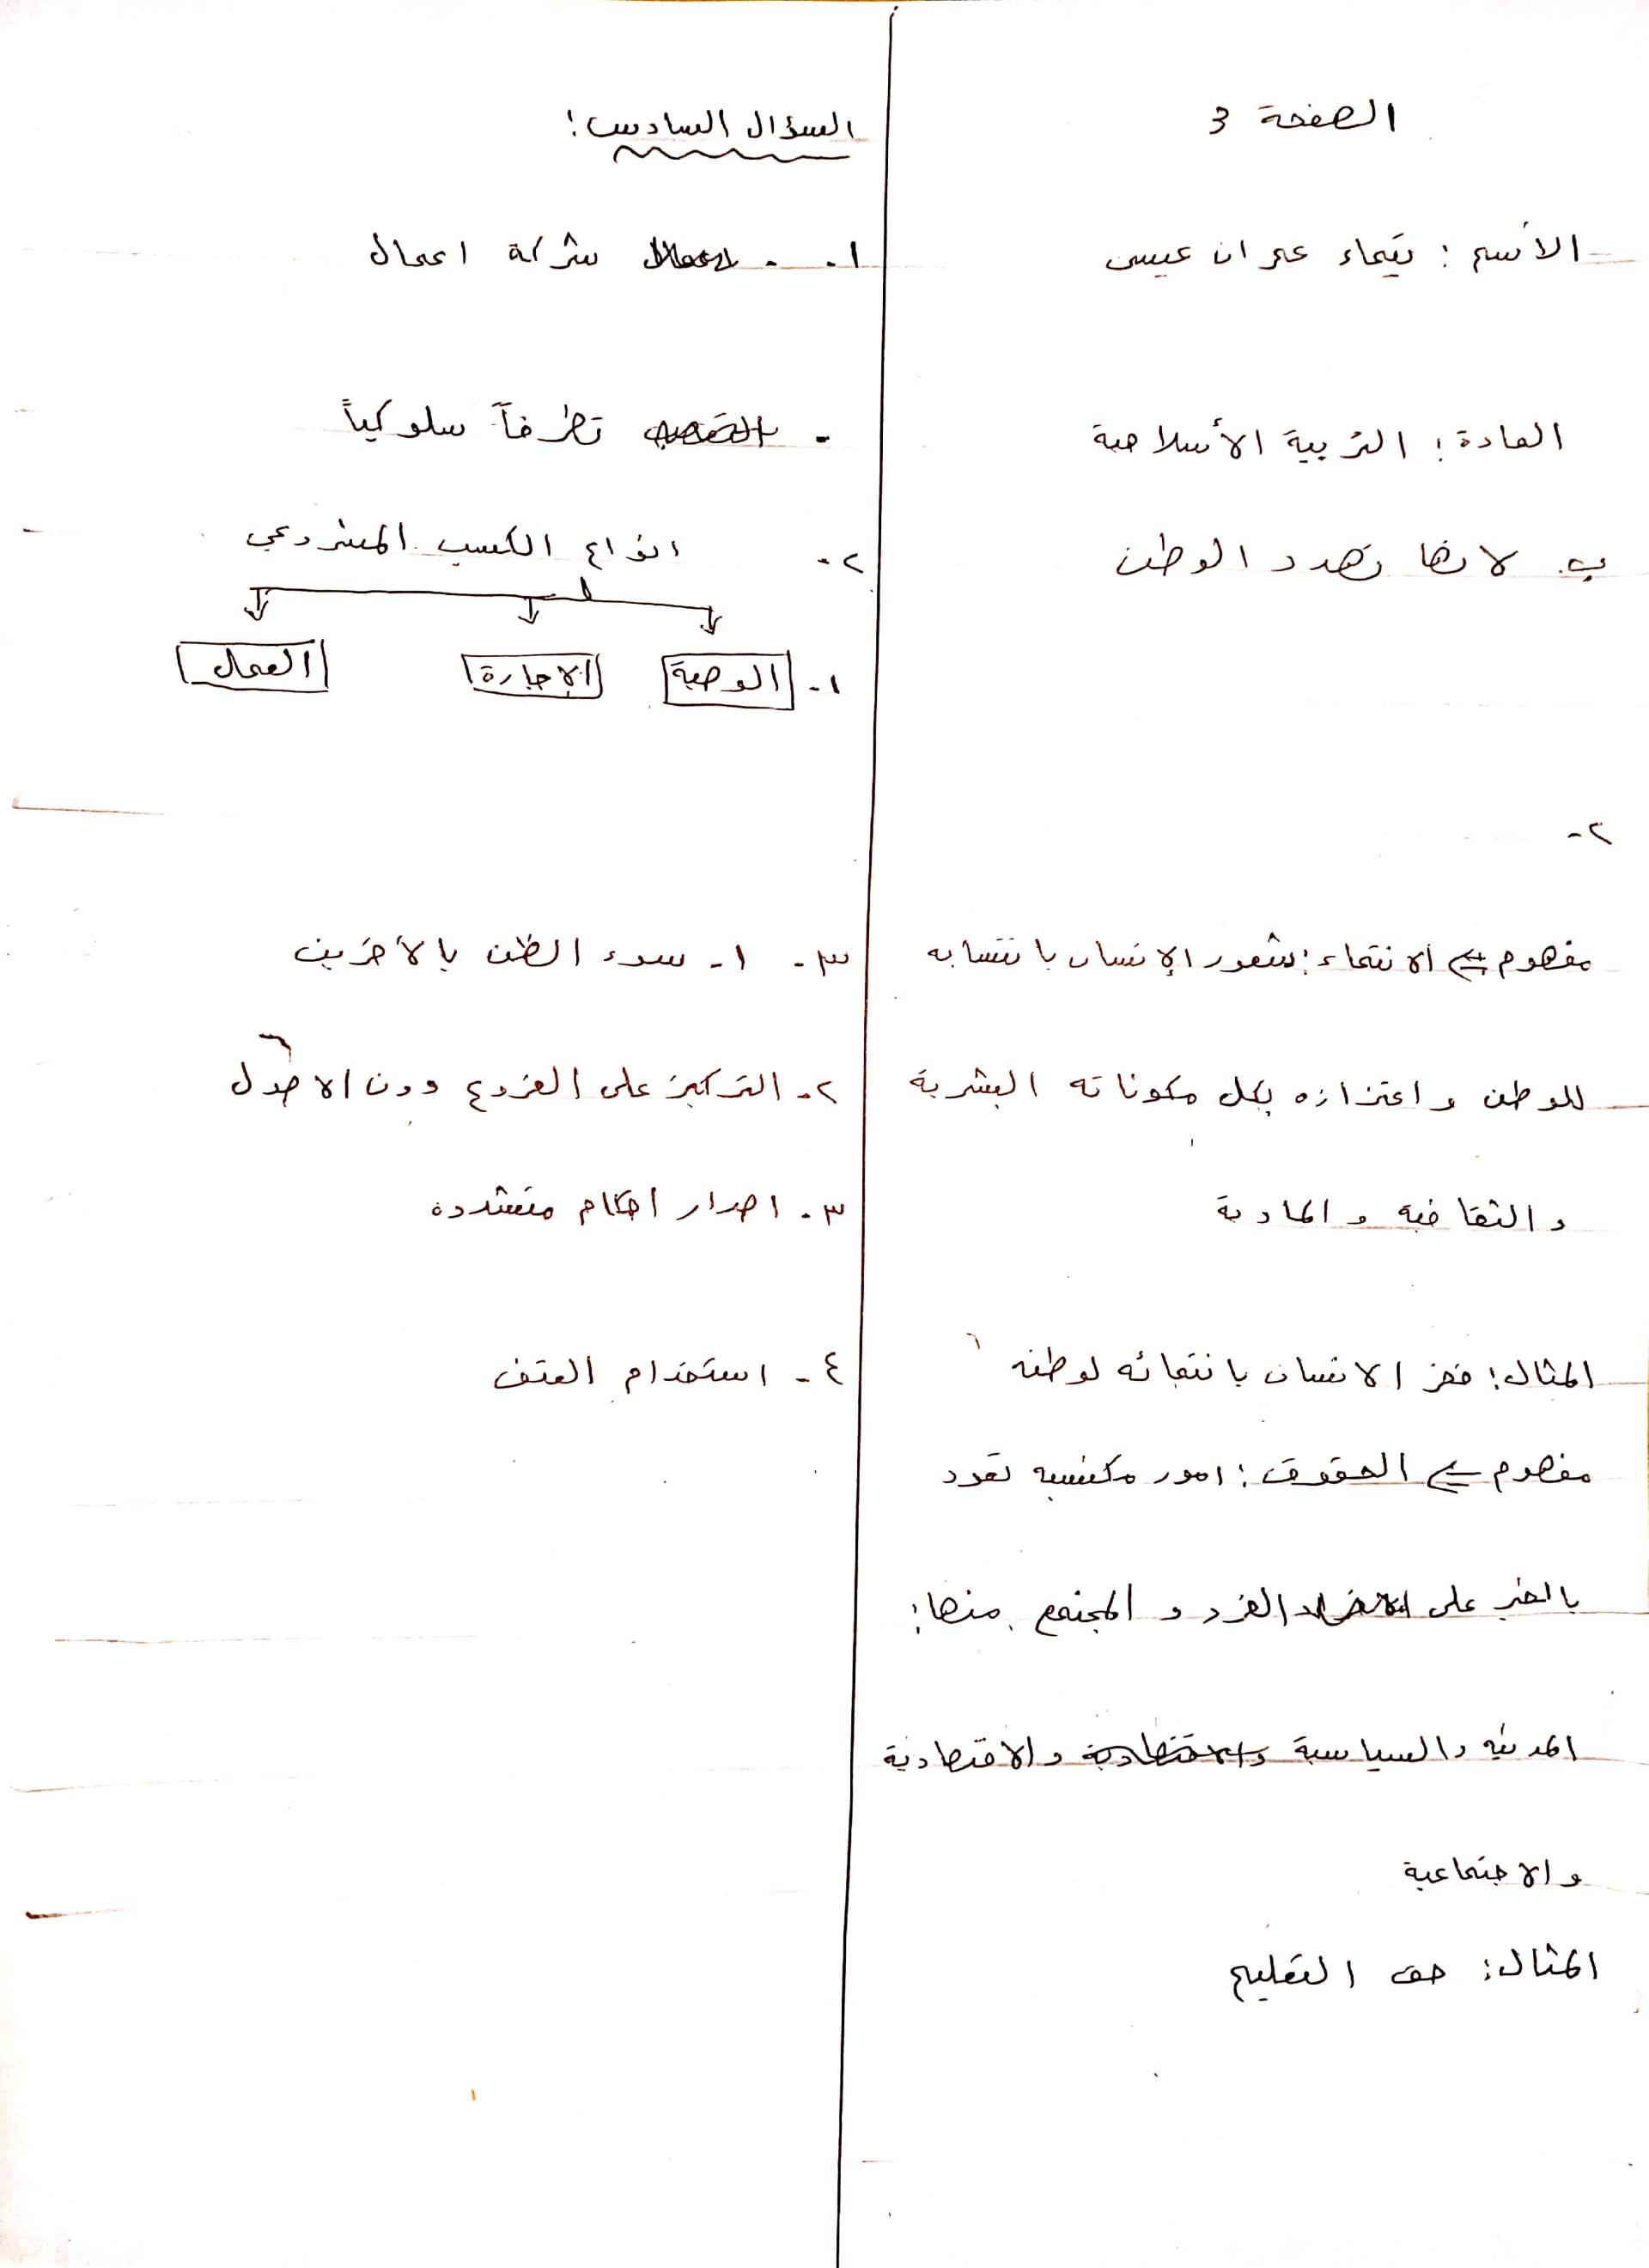 الصفحة 3
الأسم : تيماء عمران عيسى
المادة : التربية الأسلامية
ب. لانها تهدد الوطن
٢-
مفهوم الانتماء : شعور الإنسان بانتسابه
للوطن واعتزازه بكل مكوناته البشرية
والثقافيه والمادية
المثال : فخر الانسان بانتمائه لوطنه
مفهوم الحقوق : امور مكتسبه تعود
بالخير على الفرد والمجتمع منها :
المدنيه والسياسية والاقتصادية
والاجتماعية
المثال : حق التعليم
السؤال السادس :
١- . شركة اعمال
. تطرفاً سلوكياً
٢- انواع الكسب المشروعي
١- الوصية الإجارة العمال
٣- ١- سوء الظن بالأخرين
٢- التركيز على الفروع دون الاصول
٣- اصدار احكام متشدده
٤- استخدام العنف